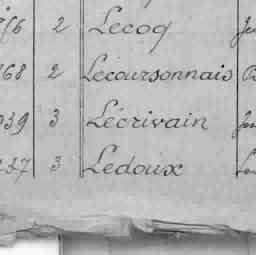 2 Lecoq
68 2 Lecoursonnais
039 3 Lécrivain
237 3 Ledoux